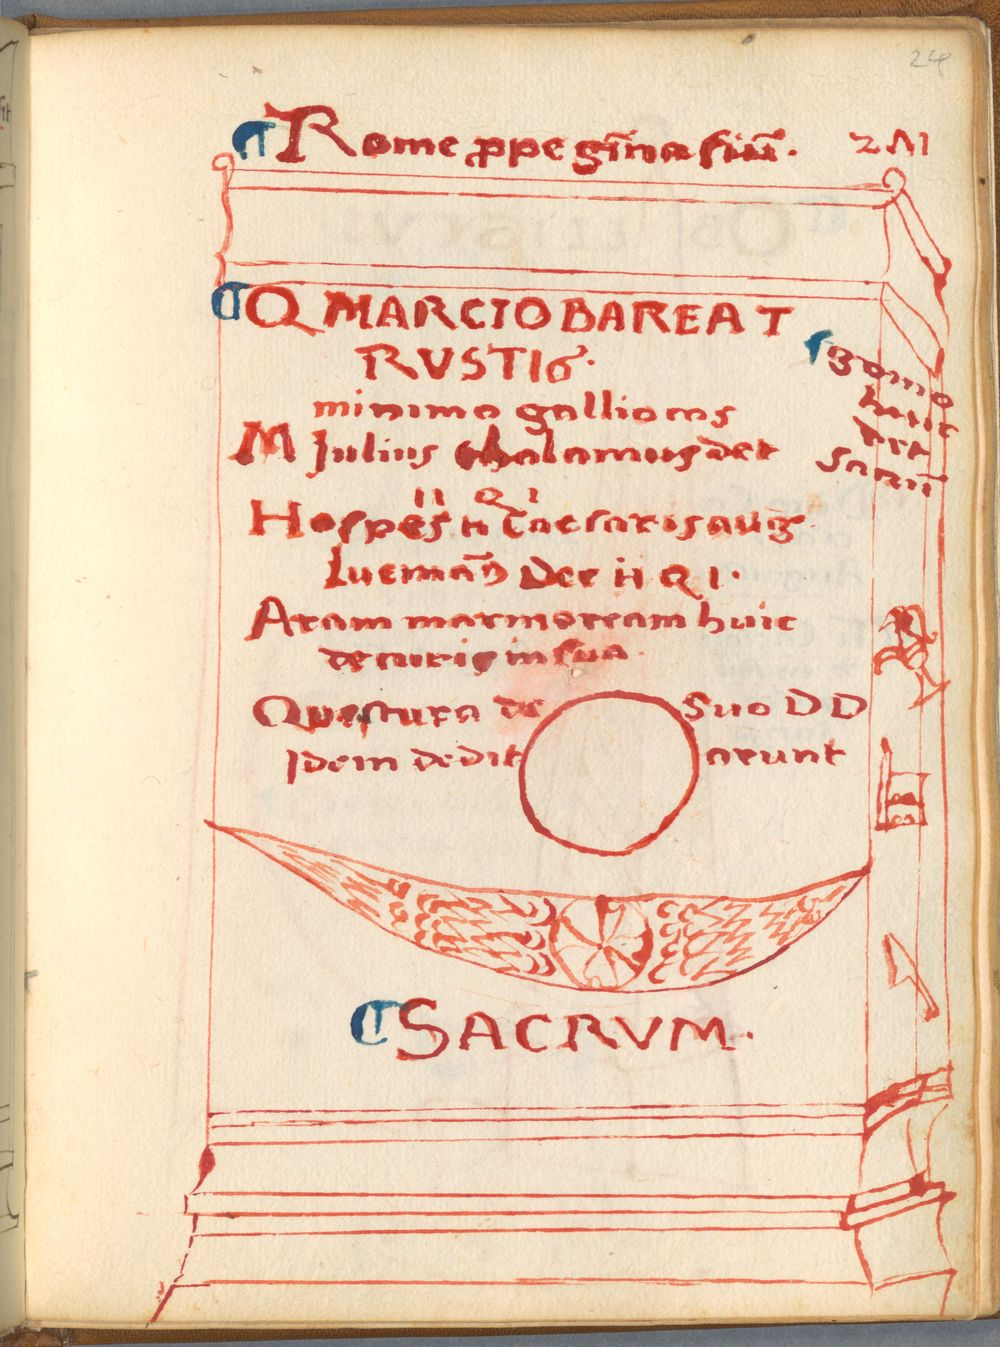 24
¶ Rome ꝓpe gīnasiū̄. 2 M
¶ Q MARCIO BAREA T
RUSTIO·
minimo gallioms
M Julius thalamus det
II Q I
Hospes ñ Caesaris aug
Luemañ Dec ii Q I·
Aram marmoream huic
decurig in sua
Questura de suo D D
Idem dedit arunt
domo
huic
det
¶ SACRVM.